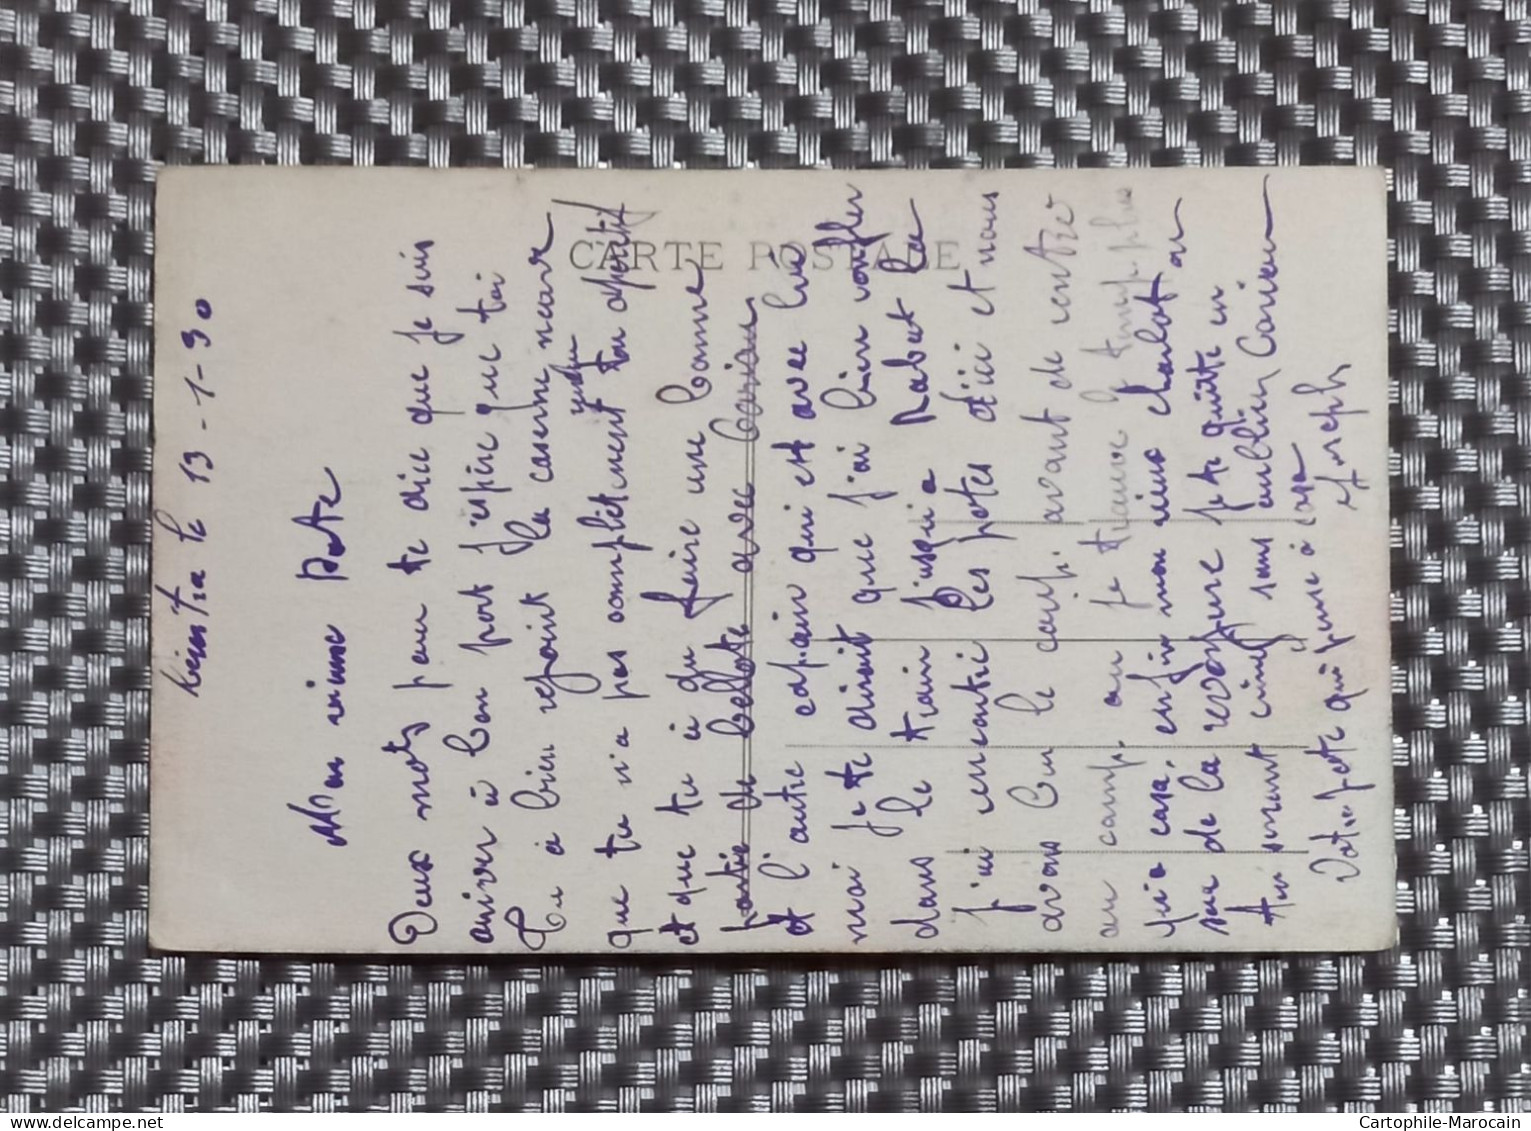 Kenitra le 13-1-30
Mon vieux Pote
Deux mots pour te dire que je suis
arriver à bon port j'espère que toi
Tu a bien rejoint la caserne neuve
que tu n'a pas complètement ton apéritif
et que tu à du faire une bonne
partie de bellote avec
et l'autre copain qui est avec lui
moi je te dirait que j'ai bien ronfler
dans le train jusqu'a Rabat la
j'ai rencontré les potes d'ici et nous
avons bu le coup avant de rentré
au camp. ou je trouve le temp plus
qu'a casa. enfin mon vieux charlot on
sur de la revoyure je te quitte en
te serrant cinq sans oublier
Votre Pote qui pense à casa
Joseph
CARTE POSTALE
Cartophile-Marocain